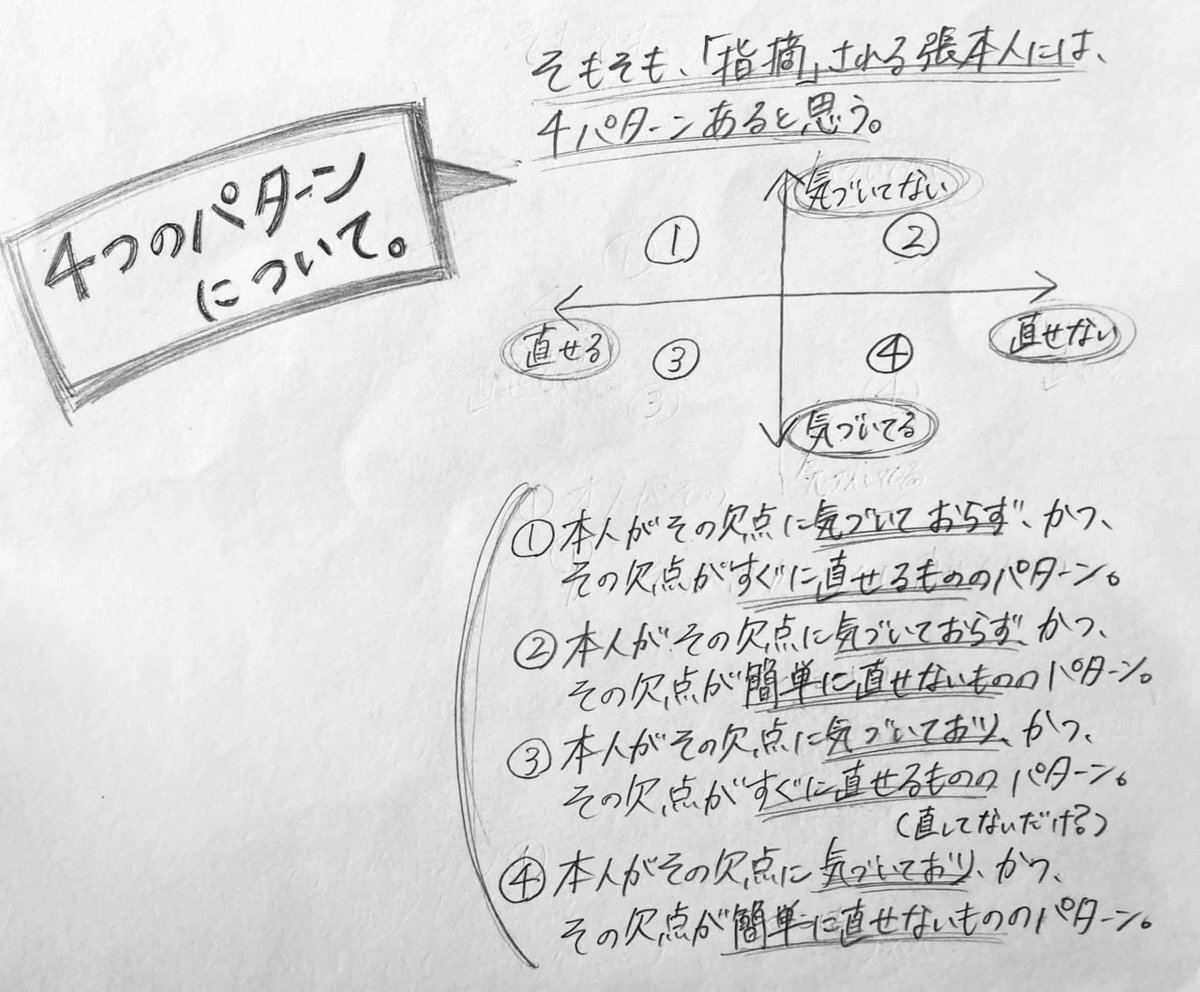 そもそも、「指摘」される張本人には、
4パターンあると思う。
4つのパターン
について。
気づいてない
①
②
直せる
直せない
③
④
気づいてる
①本人がその欠点に気づいておらず、かつ、
その欠点がすぐに直せるもののパターン。
②本人がその欠点に気づいておらず、かつ、
その欠点が簡単に直せないもののパターン。
③本人がその欠点に気づいており、かつ、
その欠点がすぐに直せるもののパターン。
(直してないだける)
④本人がその欠点に気づいており、かつ、
その欠点が簡単に直せないもののパターン。